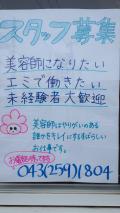 スタッフ募集
美容師になりたい
エミで働きたい
未経験者大歓迎
美容師はやりがいのある
誰かをキレイにするすばらしい
お仕事です。
043(259)1804